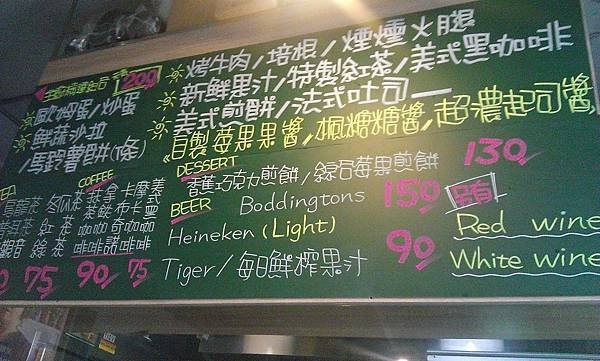 200
☼烤牛肉/培根/煙燻火腿
歐姆蛋/炒蛋
☼新鮮果汁/特製紅茶/美式黑咖啡
鮮蔬沙拉
☼美式煎餅/法式吐司
/馬鈴薯餅(1條)
《自製莓果果醬/楓糖糖醬/超濃起司醬
DESSERT
香蕉巧克力煎餅/綜合莓果煎餅 130
COFFEE
BEER Boddingtons 150 另有
Heineken (Light) 90 Red wine
Tiger/每日鮮榨果汁 White wine
75 90 75